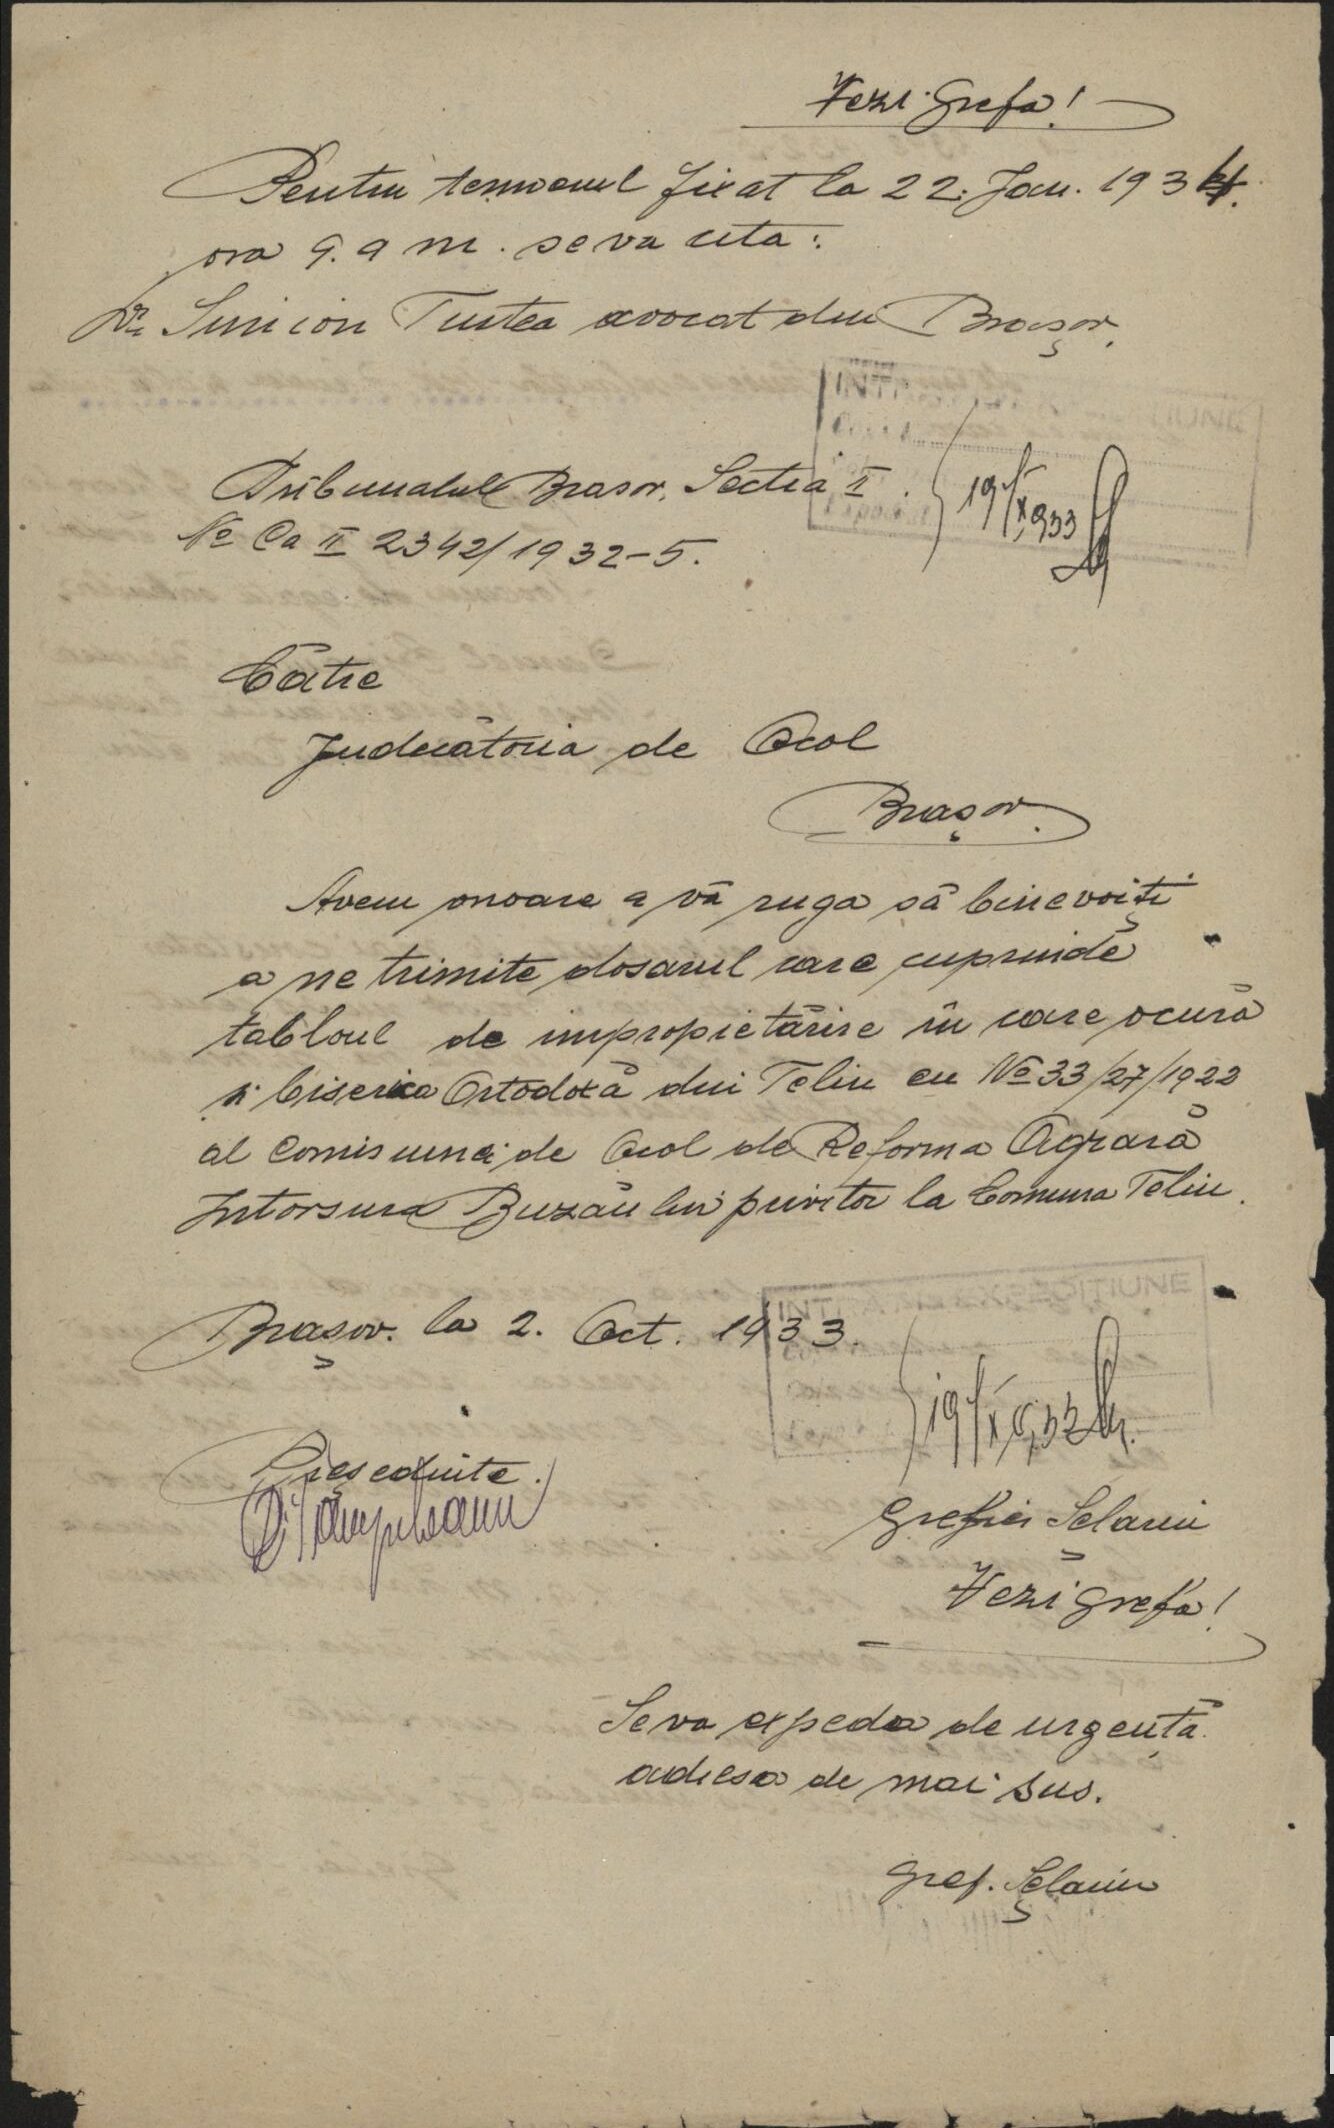 Vezi Grefa!
Pentru termenul fixat la 22. Jan. 1934.
ora 9. a m. se va cita:
Dr. Simion Tuitea avocat din Brașor.
INTR
Tribunalul Brasov, Sectia II.
19/X 933
No Ca II 2342/1932-5.
Cătie
Judecătoria de Ocol
Brașov.
Avem onoare a vă ruga să binevoiți
a ne trimite dosarul care cuprinde
tabloul de impropietărire în care ocură
si biserica Ortodoxă din Teliu cu No 33/27/1922
al Comisiunei de Ocol de Reforma Agrară
Intorsura Buzăului privitor la Comuna Teliu.
INT EXPEDIȚIUNE
Brașov. la 2. Oct. 1933.
19/X 933
Președinte.
Grefier Șelariu
Vezi Grefa!
Se va expeda de urgență
adresa de mai sus.
Gref. Șelariu